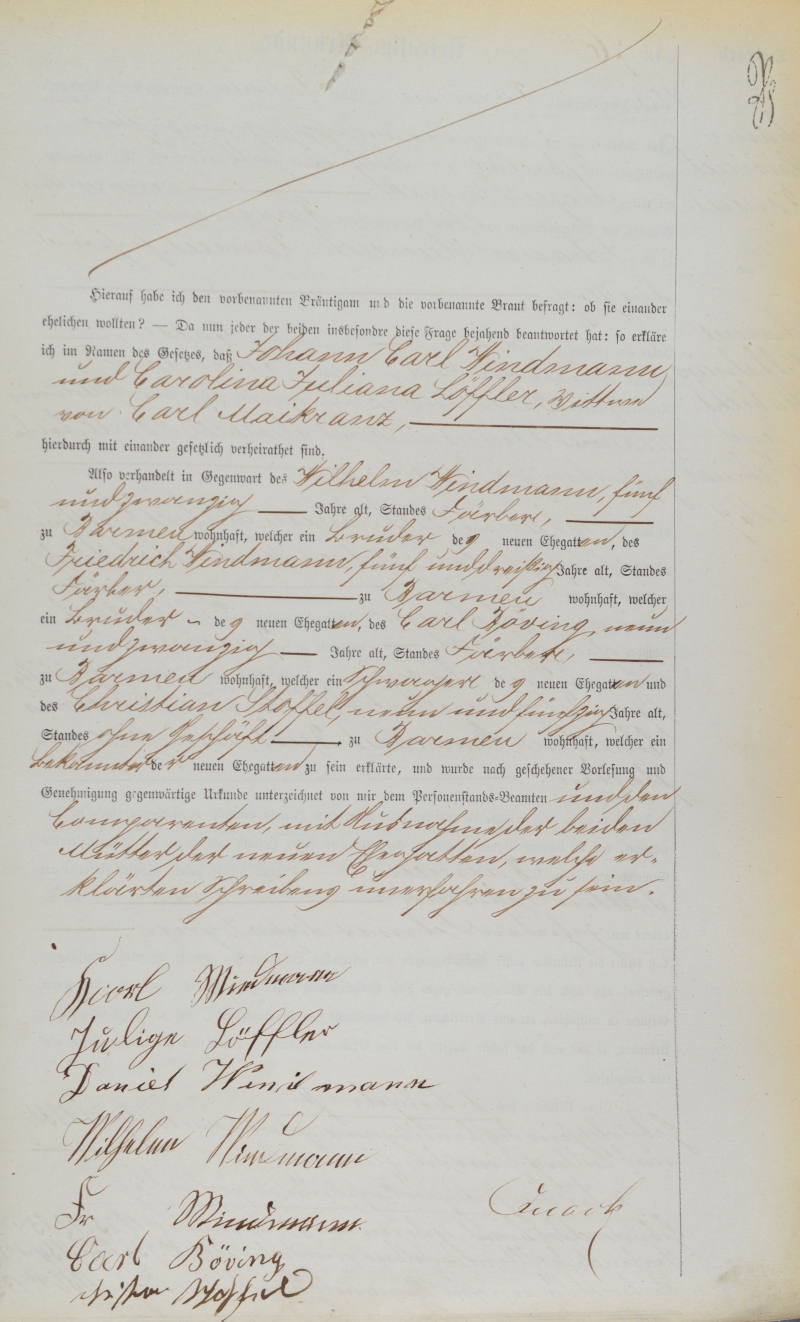 Hierauf habe ich den vorbenannten Bräutigam und die vorbenannte Braut befragt: ob sie einander
ehelichen wollten? — Da nun jeder der beiden insbesondre diese Frage bejahend beantwortet hat: so erkläre
ich im Namen des Gesetzes, daß Johann Carl Windmann
und Carolina Juliana Löffler, Wittwe
von Carl Maikranz,
hierdurch mit einander gesetzlich verheirathet sind.
Also verhandelt in Gegenwart des Wilhelm Windmann, fünf
und zwanzig Jahre alt, Standes Färber,
zu Barmen wohnhaft, welcher ein Bruder des neuen Ehegatten, des
Friedrich Windmann, fünf und dreißig Jahre alt, Standes
Färber, zu Barmen wohnhaft, welcher
ein Bruder des neuen Ehegatten, des Carl Böving, neun
und zwanzig Jahre alt, Standes Färber,
zu Barmen wohnhaft, welcher ein Schwager des neuen Ehegatten und
des Christian Stoffel, neun und fünfzig Jahre alt,
Standes ohne Geschäft zu Barmen wohnhaft, welcher ein
Bekannter der neuen Ehegatten zu sein erklärte, und wurde nach geschehener Vorlesung und
Genehmigung gegenwärtige Urkunde unterzeichnet von mir dem Personenstands-Beamten und den
Comparenten, mit Ausnahme der beiden
Mütter der neuen Ehegatten, welche er-
klärten Schreibens unerfahren zu sein.
Karl Windmann
Julige Löffler
Daniel Windmann
Wilhelm Windmann
Fr Windmann
Carl Böving
Stoffel